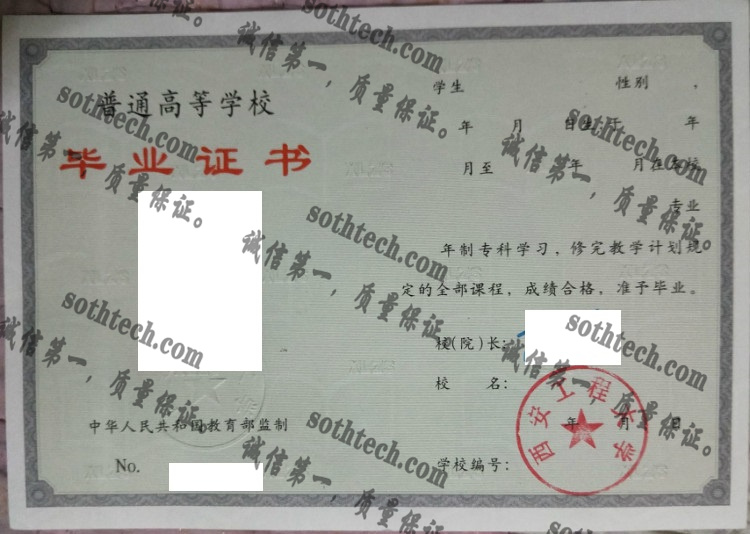 普通高等学校
毕业证书
中华人民共和国教育部监制
No.
学生 性别 ,
年 月 日生,于 年
月至 年 月在本校
专业
年制专科学习,修完教学计划规
定的全部课程,成绩合格,准予毕业。
校(院)长:
校 名:
年 月 日
学校编号:
西安工程大学
sothtech.com
诚信第一,质量保证。
sothtech.com
诚信第一,质量保证。
sothtech.com
诚信第一,质量保证。
sothtech.com
诚信第一,质量保证。
sothtech.com
诚信第一,质量保证。
sothtech.com
诚信第一,质量保证。
sothtech.com
诚信第一,质量保证。